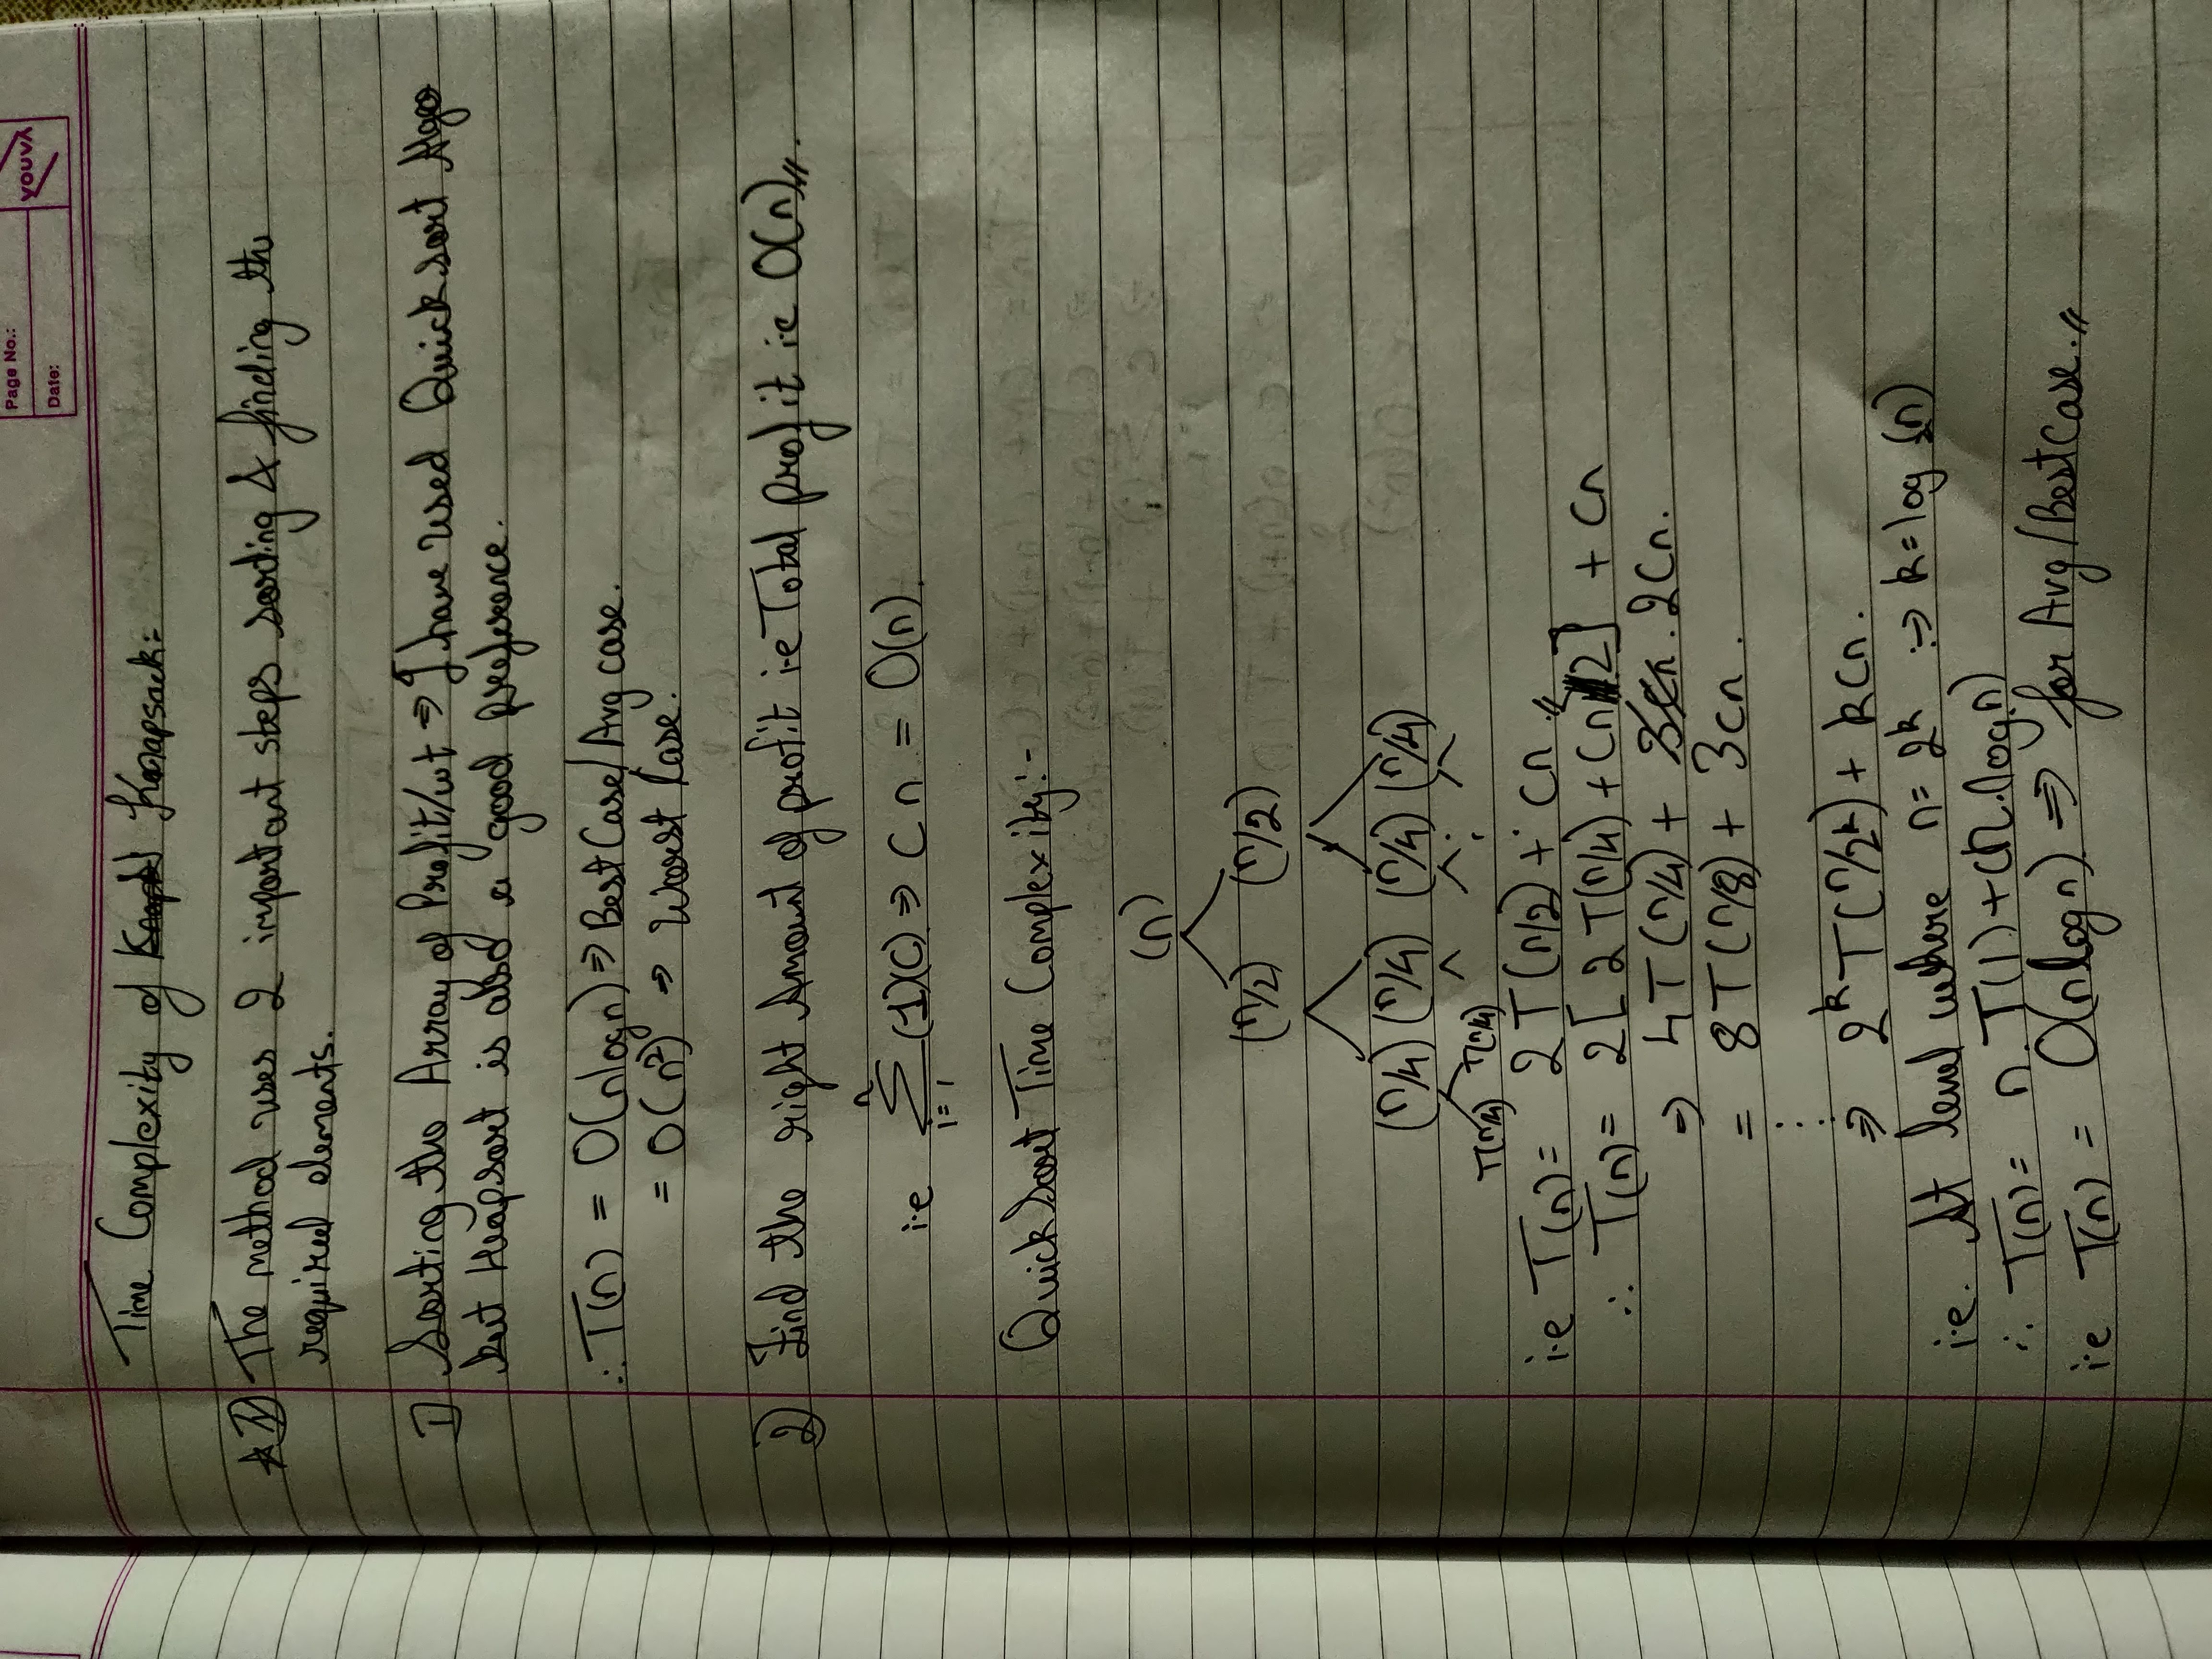 Page No.:
Date:
YOUVA
Time Complexity of Knapsack:
The method uses 2 important steps sorting & finding the
required elements.
1) Sorting the Array of Profit/wt ⇒ I have used Quick sort Algo
but Heapsort is also a good preference.
∴ T(n) = O(nlogn) ⇒ Best Case/Avg case.
= O(n²) ⇒ Worst Case.
2) Find the right Amount of profit i.e Total profit ie O(n)
i.e n Σ i=1 (1)(C) ⇒ Cn = O(n).
Quick Sort Time Complexity:-
(n)
(n/2) (n/2)
(n/4) (n/4) (n/4) (n/4)
i.e T(n) = 2T(n/2) + Cn
∴ T(n) = 2[2T(n/4) + Cn/2] + Cn
⇒ 4T(n/4) + 2Cn.
= 8T(n/8) + 3Cn.
⇒ 2^k T(n/2^k) + kCn.
i.e. At level where n = 2^k ∴⇒ k = log (n)
∴ T(n) = n.T(1) + Cn.logn
ie T(n) = O(nlogn) ⇒ for Avg/Best Case.